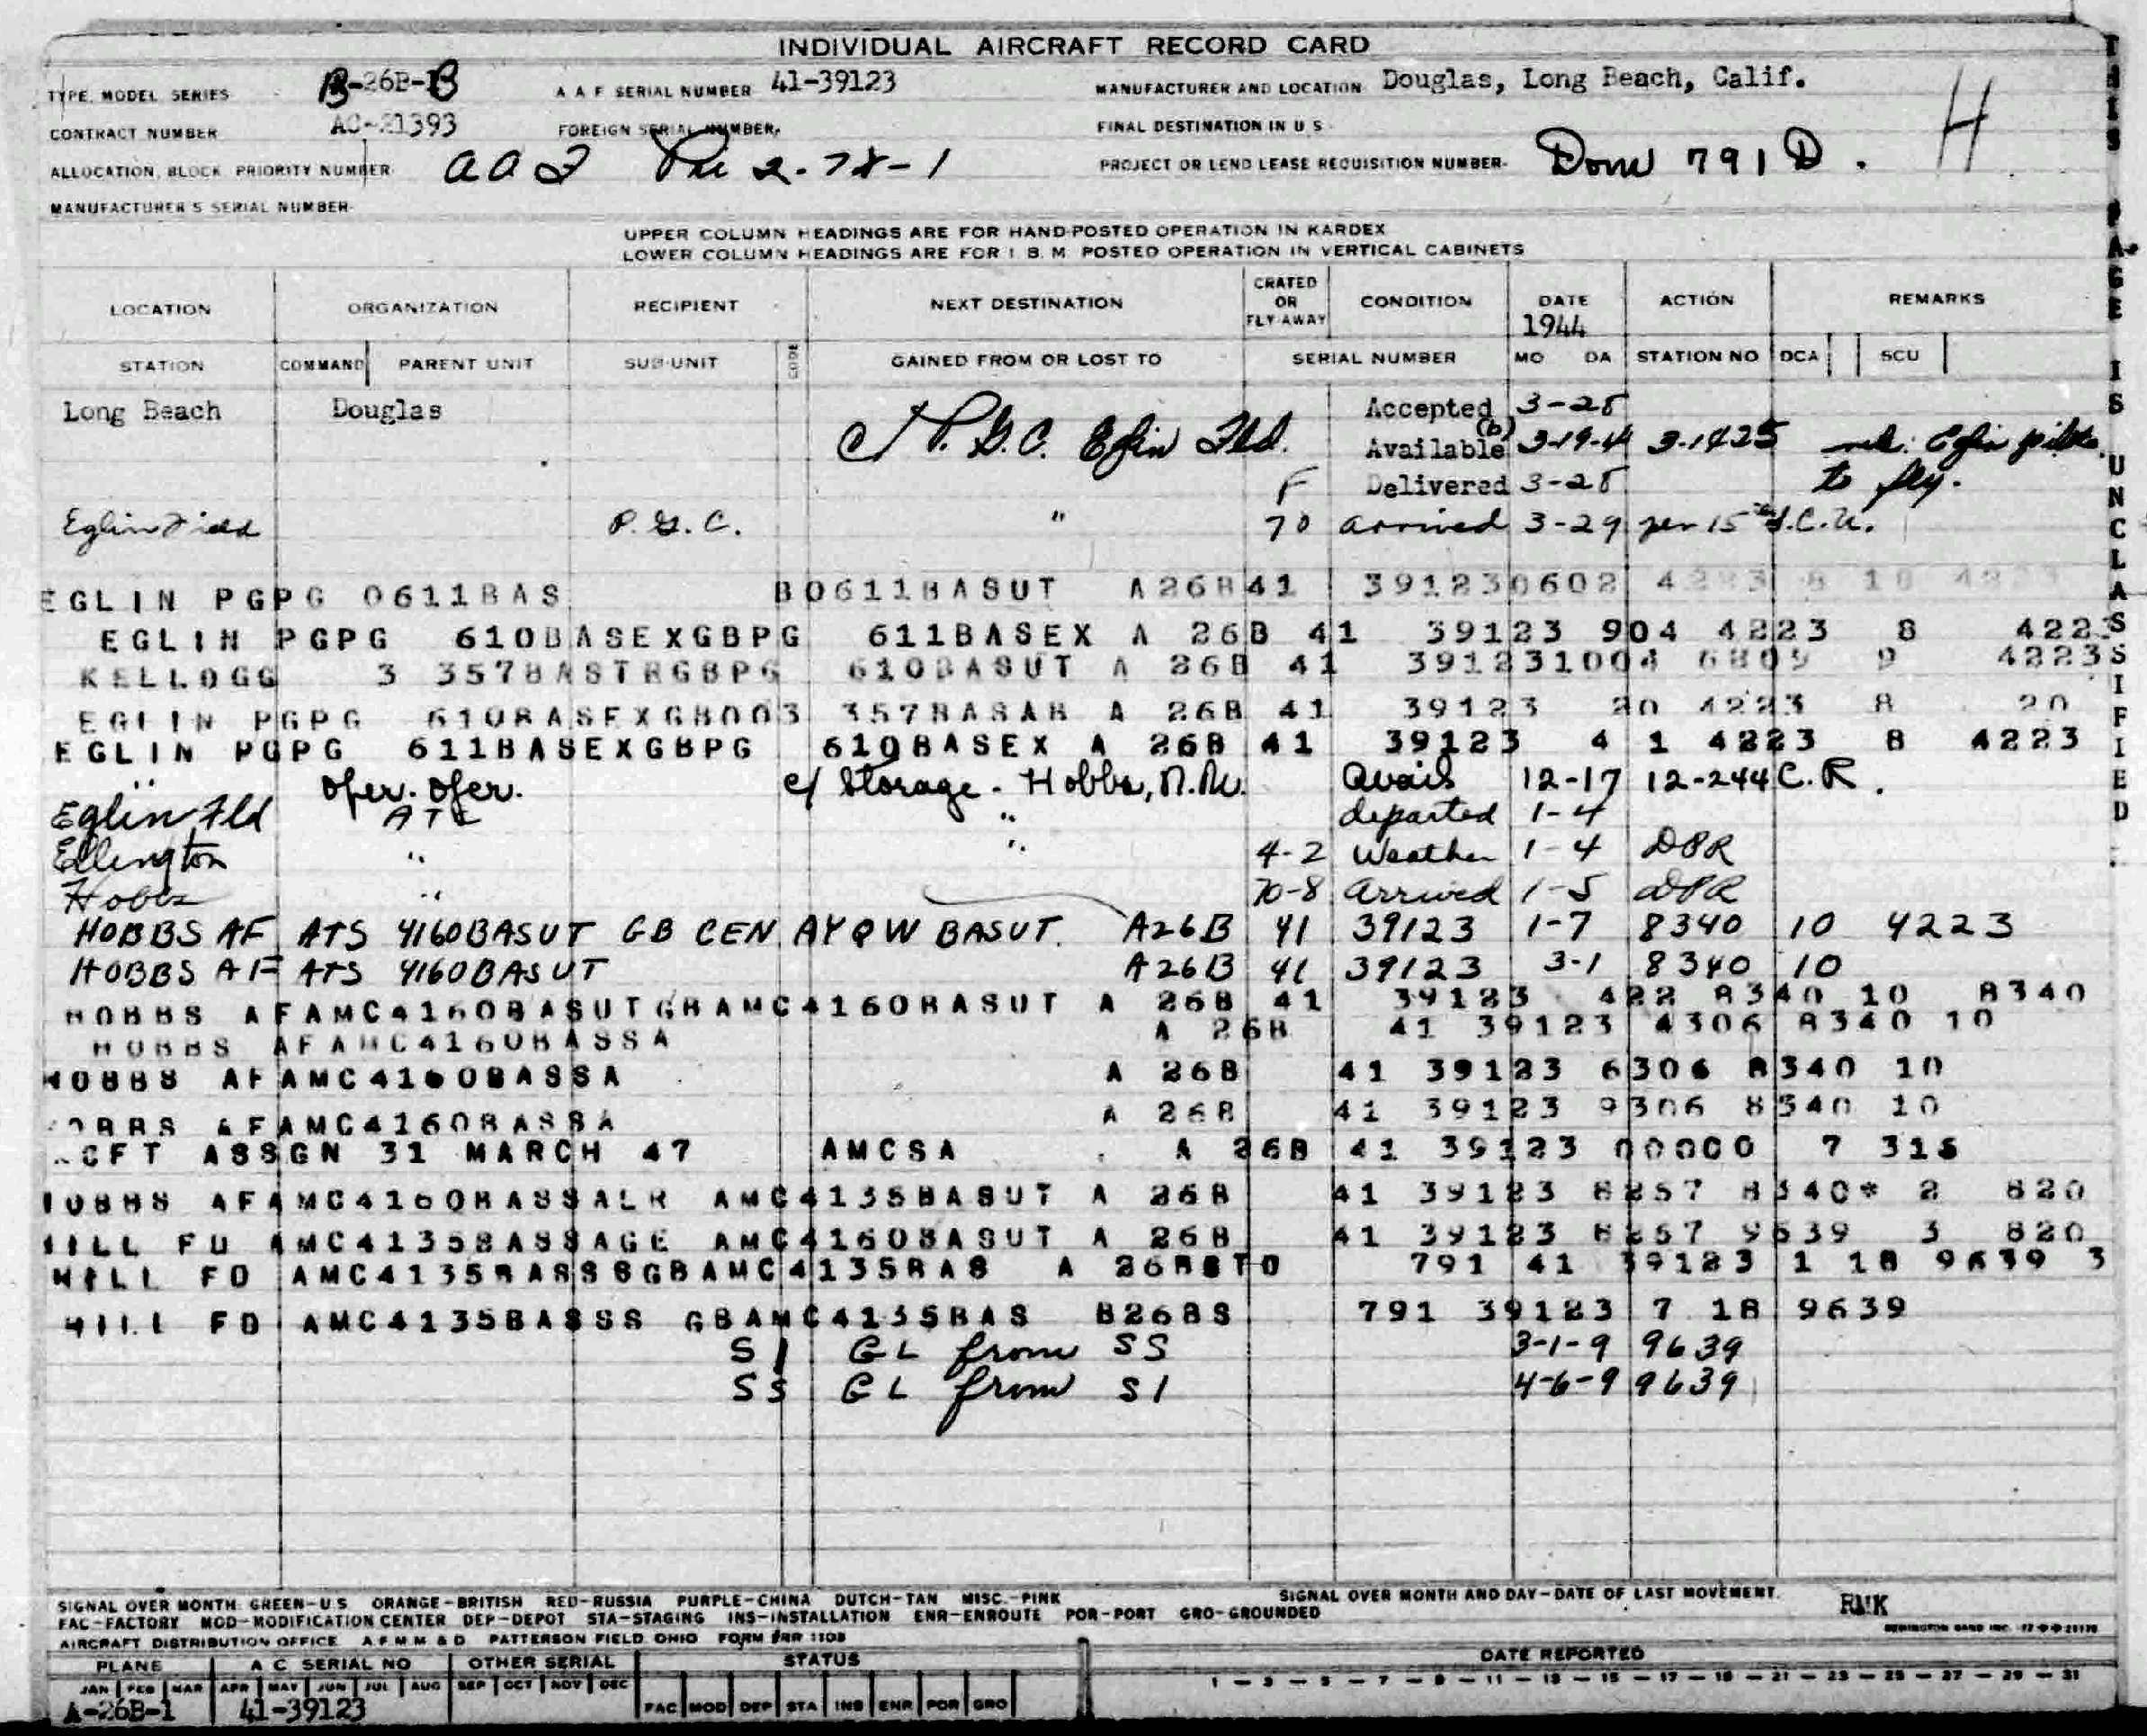 INDIVIDUAL AIRCRAFT RECORD CARD
TYPE, MODEL SERIES B-26B-B A A F SERIAL NUMBER 41-39123 MANUFACTURER AND LOCATION Douglas, Long Beach, Calif. H
CONTRACT NUMBER AC-21393 FOREIGN SERIAL NUMBER, FINAL DESTINATION IN U S
ALLOCATION, BLOCK, PRIORITY NUMBER 2-78-1 PROJECT OR LEND LEASE REQUISITION NUMBER- Dom 791 D.
MANUFACTURER'S SERIAL NUMBER
UPPER COLUMN HEADINGS ARE FOR HAND-POSTED OPERATION IN KARDEX
LOWER COLUMN HEADINGS ARE FOR I. B. M. POSTED OPERATION IN VERTICAL CABINETS
LOCATION ORGANIZATION RECIPIENT NEXT DESTINATION CRATED OR FLY-AWAY CONDITION DATE 1944 ACTION REMARKS
STATION COMMAND PARENT UNIT SUB-UNIT CODE GAINED FROM OR LOST TO SERIAL NUMBER MO DA STATION NO DCA SCU
Long Beach Douglas Accepted 3-28
P.G.C. Eglin Fld. Available (b) 3-19-4 Eglin pilots
F Delivered 3-28 to fly.
Eglin Field P.G.C. " 70 arrived 3-29 per 15
EGLIN PGPG 0611BAS B0611BASUT A26B41 391230602
EGLIN PGPG 610BASEXGBPG 611BASEX A 26B 41 39123 904 4223 8 4223
KELLOGG 3 357BASTRGBPG 610BASUT A 26B 41 391231004 6809 9 4223
EGLIN PGPG 610BASEXGB003 357BASAB A 26B 41 39123 20 4223 8 20
EGLIN PGPG 611BASEXGBPG 610BASEX A 26B 41 39123 4 1 4223 8 4223
" Oper. Oper. c/ Storage - Hobbs, N.M. Avail 12-17 12-244 C.R.
Eglin Fld ATC " departed 1-4
Ellington " " 4-2 Weather 1-4 DPR
Hobbs " 70-8 Arrived 1-5 DPR
HOBBS AF ATS 4160BASUT GB CEN AYQW BASUT. A26B 41 39123 1-7 8340 10 4223
HOBBS AF ATS 4160BASUT A26B 41 39123 3-1 8340 10
HOBBS AFAMC4160BASUTGBAMC4160BASUT A 26B 41 39123 422 8340 10 8340
HOBBS AFAMC4160BASSA A 26B 41 39123 4306 8340 10
HOBBS AFAMC4160BASSA A 26B 41 39123 6306 8340 10
HOBBS AFAMC4160BASSA A 26B 41 39123 9306 8340 10
ACFT ASSGN 31 MARCH 47 AMCSA A 26B 41 39123 00000 7 315
HOBBS AFAMC4160BASSALR AMC4135BASUT A 26B 41 39123 8257 8340* 2 820
HILL FD AMC4135BASSAGE AMC4160BASUT A 26B 41 39123 8257 9639 3 820
HILL FD AMC4135BASSSGBAMC4135BAS A 26BSTO 791 41 39123 1 18 9639 3
HILL FD AMC4135BASSS GBAMC4135BAS B26BS 791 39123 7 18 9639
S1 GL from SS 3-1-9 9639
SS GL from S1 4-6-9 9639
THIS PAGE IS UNCLASSIFIED
SIGNAL OVER MONTH GREEN-U.S. ORANGE-BRITISH RED-RUSSIA PURPLE-CHINA DUTCH-TAN MISC.-PINK SIGNAL OVER MONTH AND DAY-DATE OF LAST MOVEMENT. RMK
FAC-FACTORY MOD-MODIFICATION CENTER DEP-DEPOT STA-STAGING INS-INSTALLATION ENR-ENROUTE POR-PORT GRO-GROUNDED
AIRCRAFT DISTRIBUTION OFFICE A.F.M.M. & D. PATTERSON FIELD, OHIO FORM 1108
PLANE A C SERIAL NO OTHER SERIAL STATUS DATE REPORTED
JAN FEB MAR APR MAY JUN JUL AUG SEP OCT NOV DEC 1 — 3 — 5 — 7 — 9 — 11 — 13 — 15 — 17 — 19 — 21 — 23 — 25 — 27 — 29 — 31
A-26B-1 41-39123 FAC MOD DEP STA INS ENR POR GRO